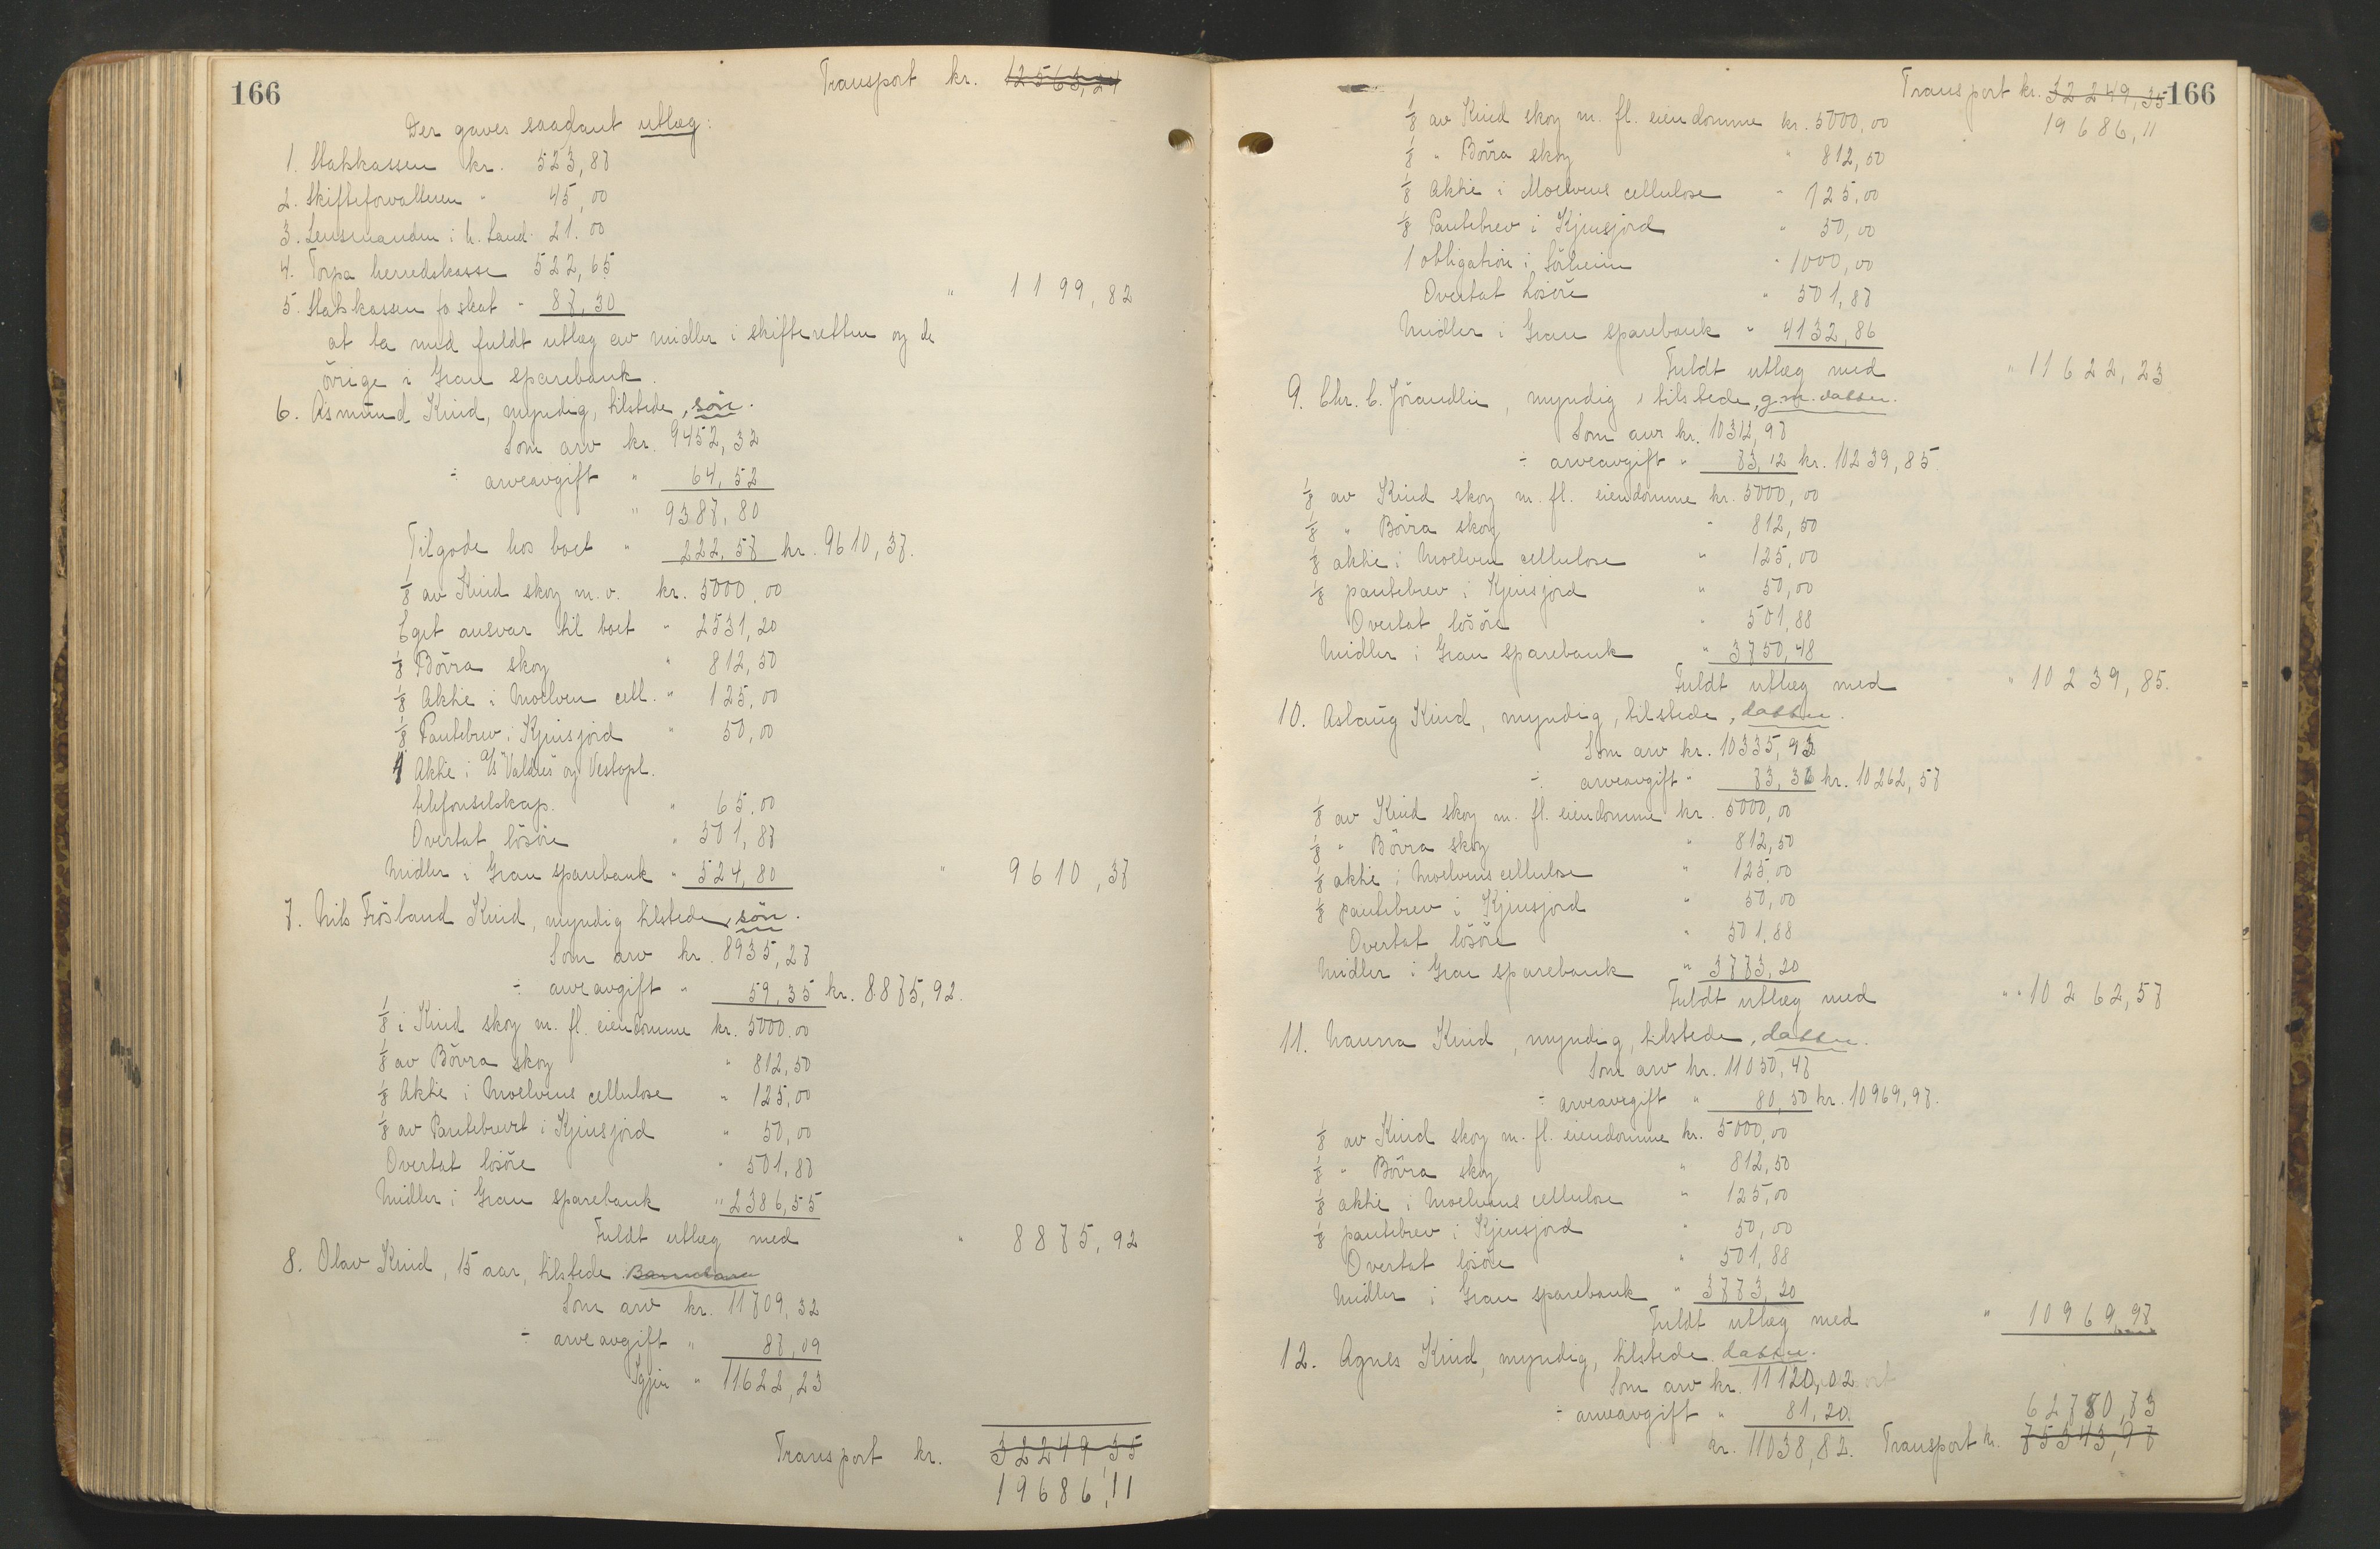 166
Transport kr. 12563,24
Der gaves saadant utlæg:
1. Statskassen kr. 523,87
2. Skifteforvalteren " 45,00
3. Lensmanden i n. Land " 21.00
4. Torpa herredskasse 522,65
5. Statskassen fo skat " 87,30 " 1199,82
at ta med fuldt utlæg av midler i skifteretten og de
övrige i Gran sparebank.
6. Åsmund Kind, myndig, tilstede, sön.
Som arv kr. 9452,32
÷ arveavgift " 64,52
" 9387,80
Tilgode hos boet " 222,57 kr. 9610,37.
1/8 av Kind skog m.v. kr. 5000.00
Eget ansvar til boet " 2531,20
1/8 Bövra skog " 812,50
1/8 Aktie i Moelven cell. " 125,00
1/8 Pantebrev i Kjinsjord " 50,00
1 Aktie i A/S Valdres og Vestopl.
telefonselskap. " 65.00
Overtat lösöre " 501,87
Midler i Gran sparebank " 524,80 " 9610,37
7. Nils Frösland Kind, myndig tilstede, sön.
Som arv kr. 8935,27
÷ arveavgift " 59,35 kr. 8875,92.
1/8 i Kind skog m. fl. eiendomme kr. 5000.00
1/8 av Bövra skog " 812,50
1/8 Aktie i Moelvens cellulose " 125,00
1/8 av Pantebrevet i Kjinsjord " 50,00
Overtat lösöre " 501,87
Midler i Gran sparebank " 2386,55
Fuldt utlæg med " 8875,92
8. Olav Kind, 15 aar, tilstede. Barnebarn
Som arv kr. 11709,32
÷ arveavgift " 87,09
Igjen " 11622,23
Transport kr. 32249,35
19686,11
Transport kr. 32249,35 166
19686,11
1/8 av Kind skog m. fl. eiendomme kr. 5000,00
1/8 " Bövra skog " 812,50
1/8 Aktie i Moelvens cellulose " 125,00
1/8 Pantebrev i Kjinsjord " 50,00
1 obligation i Sörheim " 1000,00
Overtat lösöre " 501,87
Midler i Gran sparebank " 4132,86
Fuldt utlæg med " 11622,23
9. Chr. C. Jörandlie, myndig, tilstede, g.m. datter.
Som arv kr. 10312,97
÷ arveavgift " 73,12 kr. 10239,85
1/8 av Kind skog m. fl. eiendomme kr. 5000,00
1/8 " Bövra skog " 812,50
1/8 aktie i Moelven cellulose " 125,00
1/8 pantebrev i Kjinsjord " 50,00
Overtat lösöre " 501,88
Midler i Gran sparebank " 3750,48
Fuldt utlæg med " 10239,85.
10. Aslaug Kind, myndig, tilstede, datter.
Som arv kr. 10335,93
÷ arveavgift " 73,36 kr. 10262,57
1/8 av Kind skog m. fl. eiendomme kr. 5000,00
1/8 " Bövra skog " 812,50
1/8 aktie i Moelvens cellulose " 125,00
1/8 pantebrev i Kjinsjord " 50,00
Overtat lösöre " 501.88
Midler i Gran sparebank " 3773,20
Fuldt utlæg med " 10262,57
11. Nanna Kind, myndig, tilstede, datter.
Som arv kr. 11050,47
÷ arveavgift " 80,50 kr. 10969,97.
1/8 av Kind skog m. fl. eiendomme kr. 5000,00
1/8 " Bövra skog " 812,50
1/8 aktie i Moelvens cellulose " 125,00
1/8 pantebrev i Kjinsjord " 50,00
Overtat lösöre " 501,88
Midler i Gran sparebank " 3773,20
Fuldt utlæg med " 10969,97
12. Agnes Kind, myndig, tilstede. datter.
Som arv kr. 11120,02
÷ arveavgift " 81,20.
62780,73
kr. 11038,82. Transport kr. 75343,97